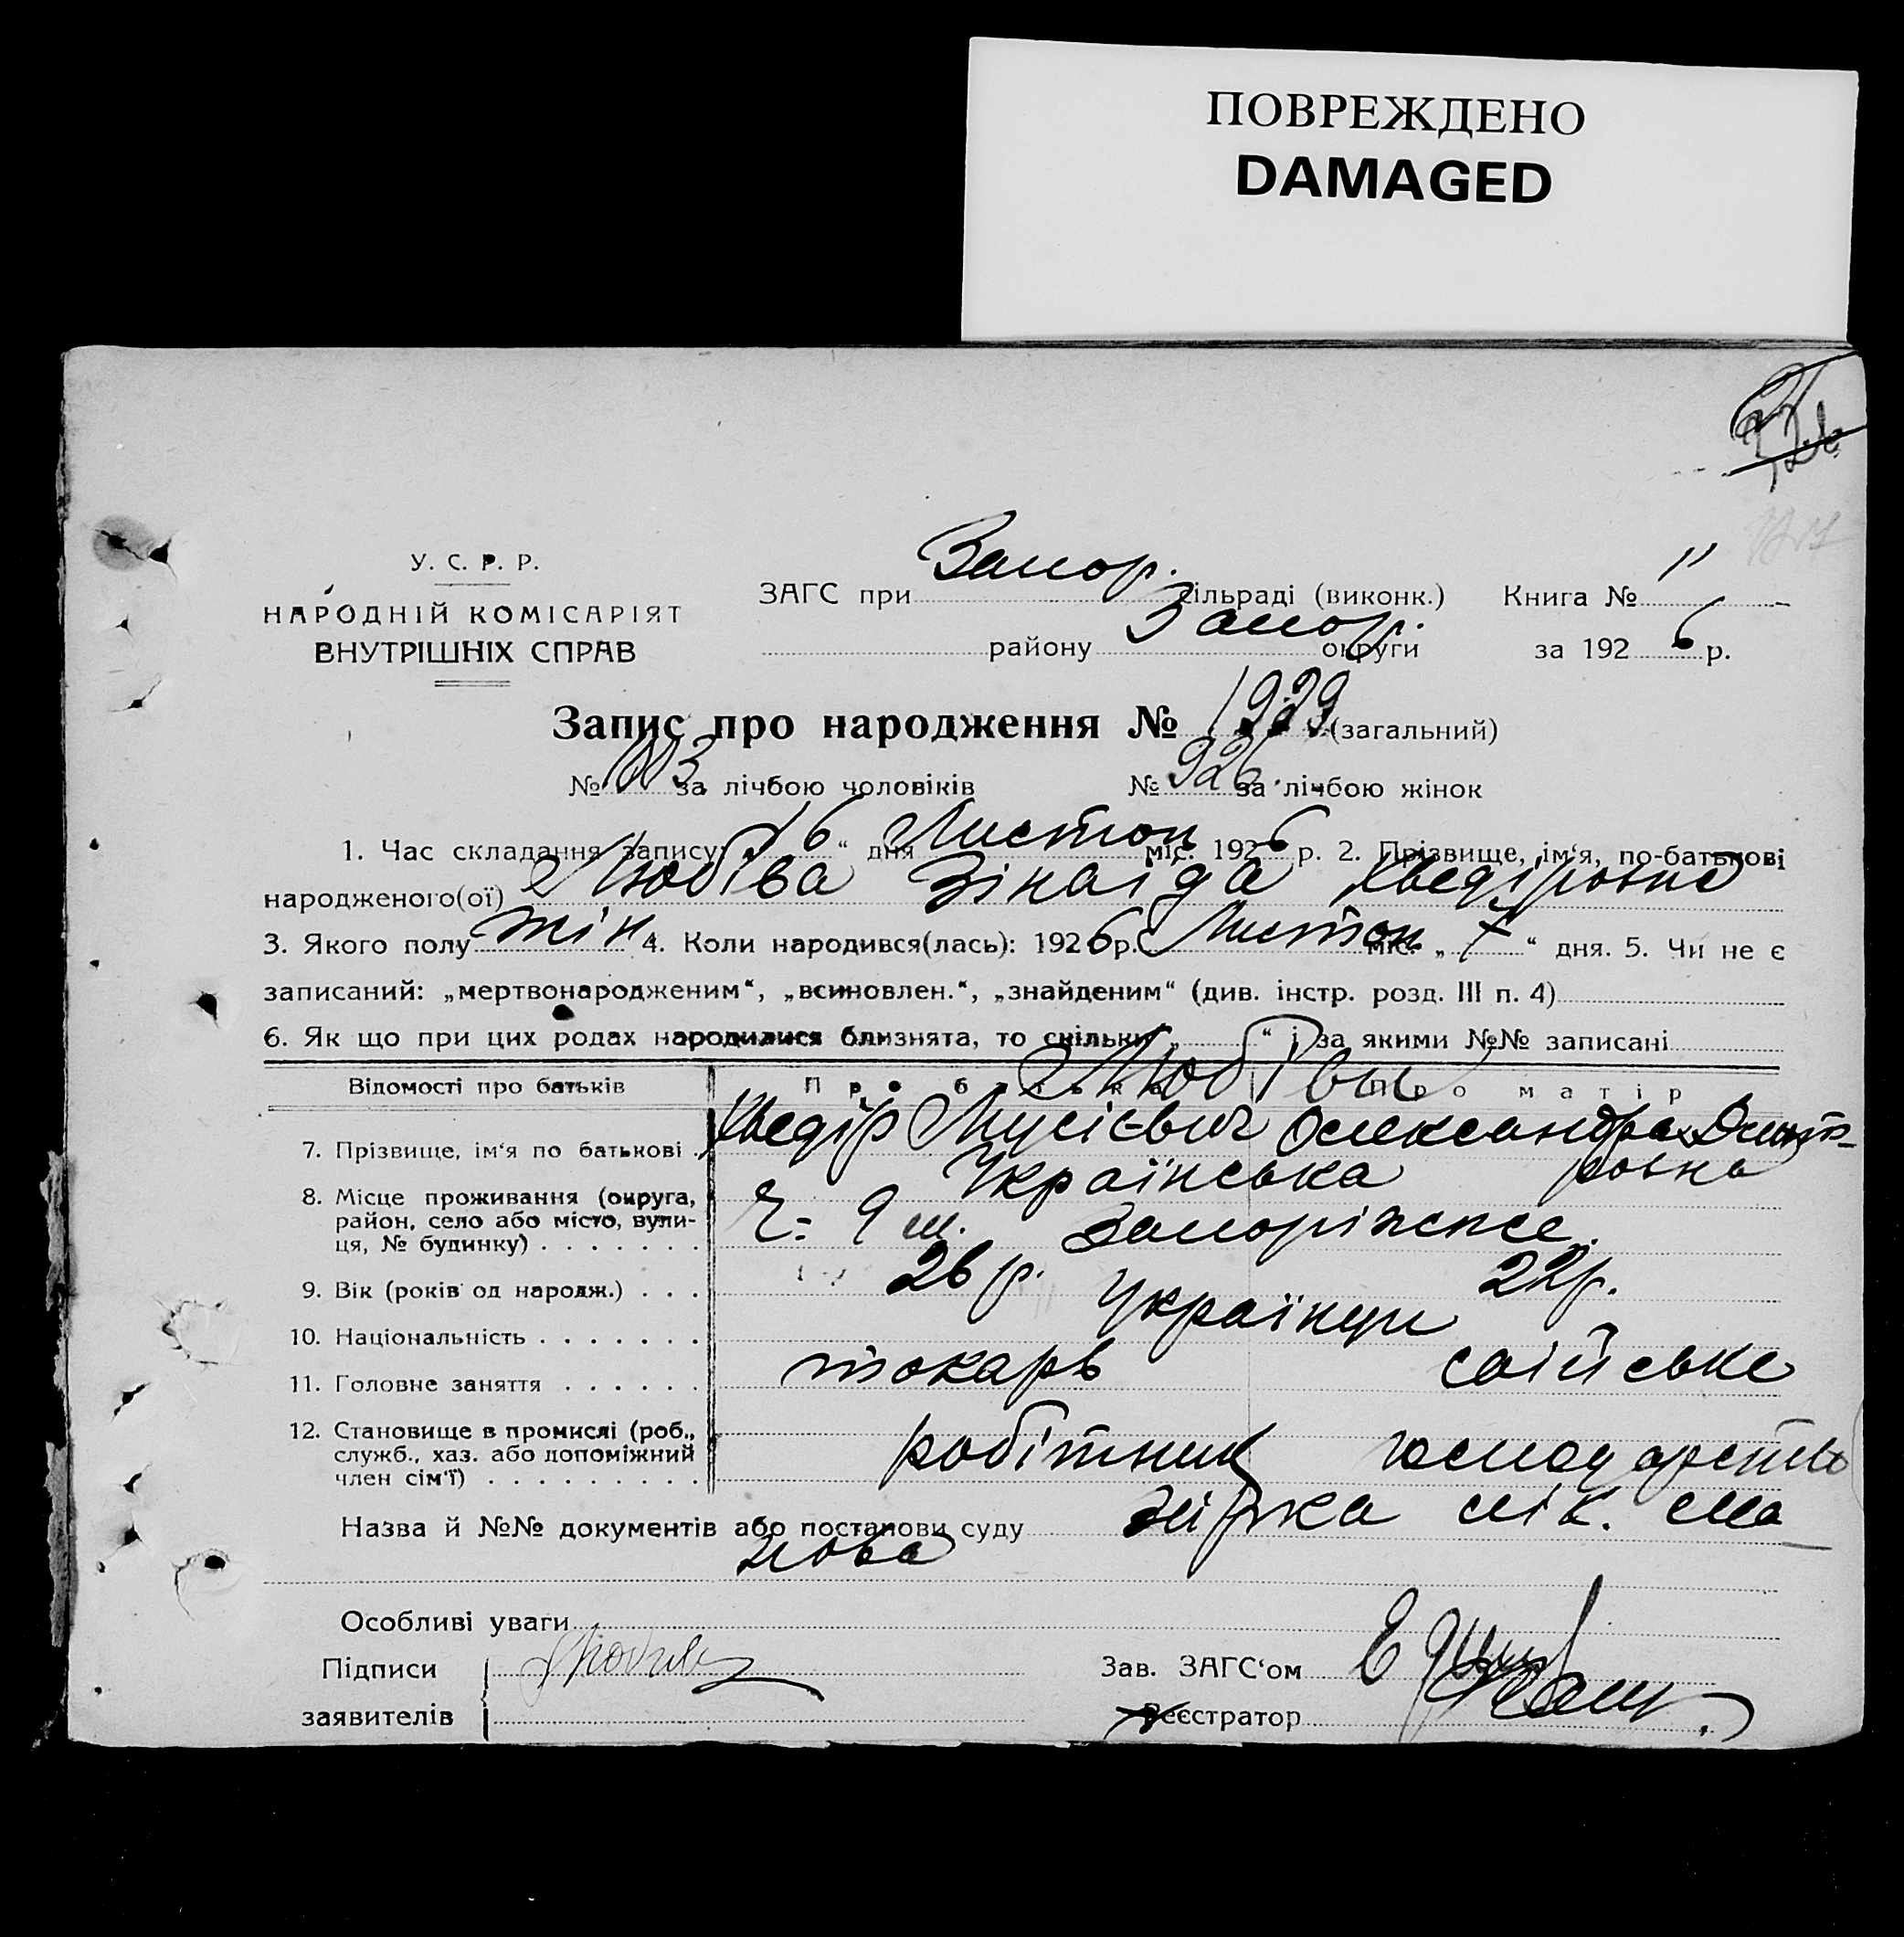 ПОВРЕЖДЕНО
DAMAGED
У. С. Р. Р.
НАРОДНІЙ КОМІСАРІЯТ
ВНУТРІШНІХ СПРАВ
ЗАГС при Запор. сільраді (виконк.) Книга № 11
району Запор. округи за 1926 р.
Запис про народження № 1929 (загальний)
№ 1003 за лічбою чоловіків № 926 за лічбою жінок
1. Час складання запису: „16“ дня Листоп міс. 1926 р. 2. Прізвище, ім‘я, по-батькові
народженого(ої) Любіва Зінаіда Хведіровна
3. Якого полу жін 4. Коли народився(лась): 1926 р. Листоп міс. „7“ дня. 5. Чи не є
записаний: „мертвонародженим“, „всиновлен.“, „знайденим“ (див. інстр. розд. III п. 4)
6. Як що при цих родах народилися близнята, то скільки „ “ і за якими №№ записані
Любіви
Відомості про батьків Про батька Про матір
7. Прізвище, ім‘я по батькові Хведір Мусієвич Олександра Дмит-
ровна
Українська
8. Місце проживання (округа,
район, село або місто, вули-
ця, № будинку) . . . . . . . 9 Запоріжже.
9. Вік (років од народж.) . . . 26 р. 22 р.
10. Національність . . . . . . . Українци
11. Головне заняття . . . . . . токарь сій ське
12. Становище в промислі (роб.,
служб., хаз. або допоміжний
член сім‘ї) . . . . . . . . . робітник господарство
Назва й №№ документів або постанови суду
Особливі уваги
Підписи
заявителів
Зав. ЗАГС‘ом
Реєстратор